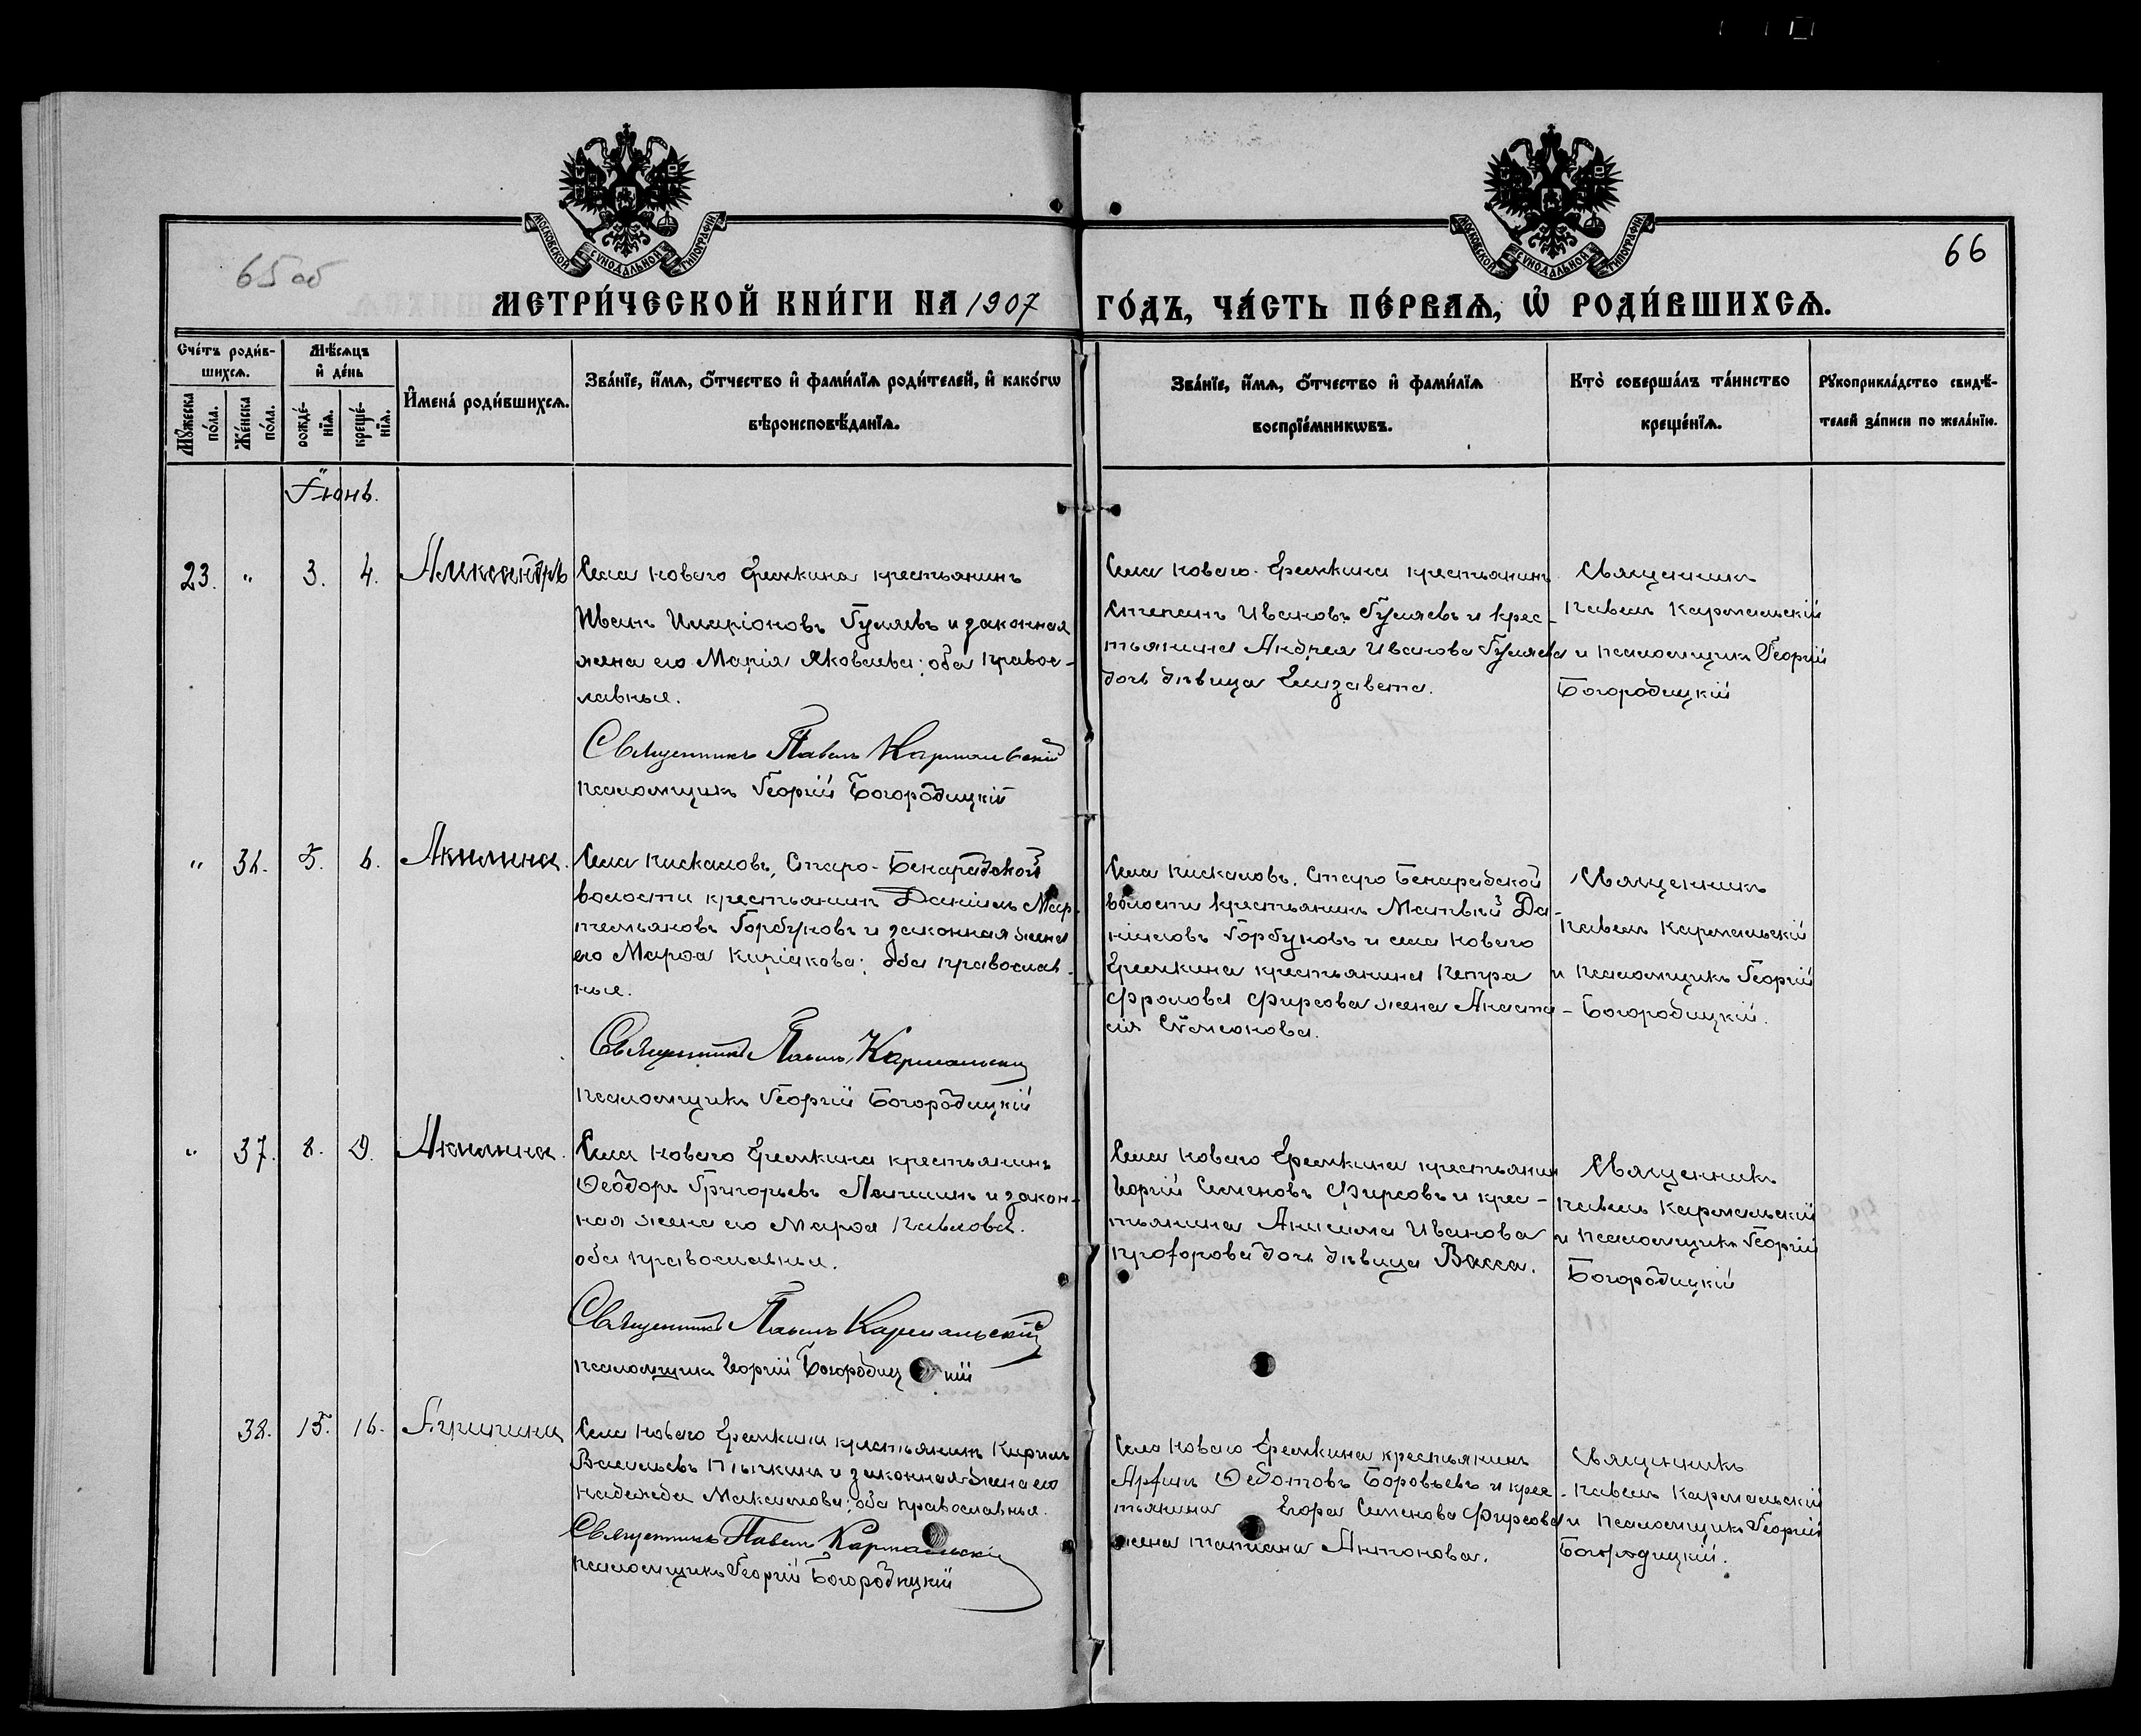 МОСКОВСКОЙ СУНОДАЛЬНОЙ ТИПОГРАФІИ
МОСКОВСКОЙ СУНОДАЛЬНОЙ ТИПОГРАФІИ
65 об
66
МЕТРИ́ЧЕСКОЙ КНИ́ГИ НА 1907
ГО́ДЪ, ЧА́СТЬ ПЕ́РВАѦ, Ѡ҆ РОДИ́ВШИХСѦ.
Сче́тъ роди́в-
шихсѧ.
Мꙋ́жеска
по́ла.
Же́нска
по́ла.
Мѣ́сѧцъ
и҆ де́нь
рожде́-
нїѧ.
креще́-
нїѧ.
И҆мена́ роди́вшихсѧ.
Зва́нїе, и҆́мѧ, ѻ҆́тчество и҆ фами́лїѧ роди́телей, и҆ како́гѡ
вѣроисповѣ́данїѧ.
Зва́нїе, и҆́мѧ, ѻ҆́тчество и҆ фами́лїѧ
воспрїе́мникѡвъ.
Кто̀ соверша́лъ та́инство
креще́нїѧ.
Рꙋкоприкла́дство свидѣ́-
телей за́писи по жела́нїю.
Іюнь.
23. " 3. 4. Александръ
Села Новаго Еремкина крестьянинъ
Иванъ Иларіоновъ Гуляевъ и законная
жена его Марія Яковлева; оба правос-
лавные.
Священникъ Павелъ Кармальскій
Псаломщикъ Георгій Богородицкій
Села Новаго Еремкина крестьянинъ
Степанъ Ивановъ Гуляевъ и крес-
тьянина Андрея Иванова Гуляева
дочь дѣвица Елизавета.
Священникъ
Павелъ Кармальскій
и псаломщикъ Георгій
Богородицкій
" 36. 5. 6. Акилина.
Села Пискаловъ, Старо-Бинарадской
волости крестьянинъ Даніилъ Мар-
темьяновъ Горбуновъ и законная жена
его Марѳа Киріакова; оба православ-
ные.
Священникъ Павелъ Кармальскій
Псаломщикъ Георгій Богородицкій
Села Пискаловъ, Старо Бинарадской
волости крестьянинъ Матвѣй Да-
ніиловъ Горбуновъ и села Новаго
Еремкина крестьянина Петра
Фролова Фирсова жена Анаста-
сія Сѵмеонова.
Священникъ
Павелъ Кармальскій
и псаломщикъ Георгій
Богородицкій.
" 37. 8. 9. Акилина.
Села Новаго Еремкина крестьянинъ
Ѳеодоръ Григорьевъ и закон-
ная жена его Марѳа Павлова.
оба православные.
Священникъ Павелъ Кармальскій
Псаломщикъ Георгій Богородицкій
Села Новаго Еремкина крестьянин
Георгій Семеновъ Фирсовъ и крес-
тьянина Анисима Иванова
Прохорова дочь дѣвица Васса.
Священникъ
Павелъ Кармальскій
и псаломщикъ Георгій
Богородицкій
38. 15. 16.
Села Новаго Еремкина крестьянинъ Кирилъ
Васильевъ Пычкинъ и законная жена его
Надежда Максимова; оба православные.
Священникъ Павелъ Кармальскій
Псаломщикъ Георгій Богородицкій
Села Новаго Еремкина крестьянинъ
Ѳедотовъ Боровьевъ и крес-
тьянина Егора Семенова Фирсова
жена Татіана Антонова.
Священникъ
Павелъ Кармальскій
и псаломщикъ Георгій
Богородицкій.